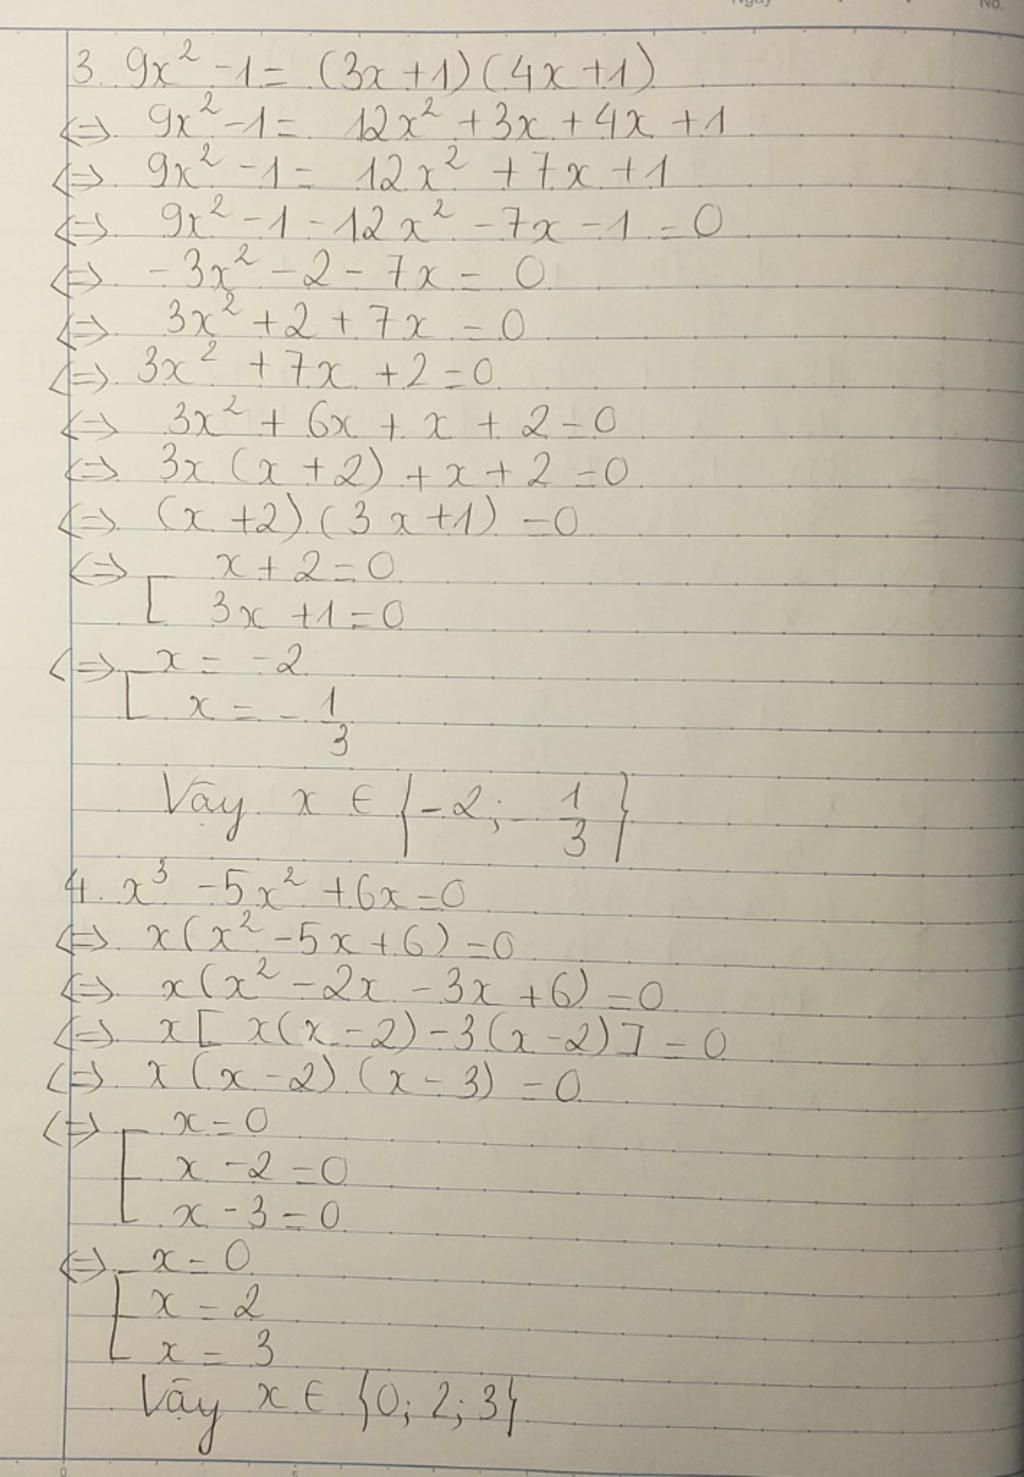 Ngày
No.
3. 9x² - 1 = (3x + 1) (4x + 1)
<=> 9x² - 1 = 12x² + 3x + 4x + 1
<=> 9x² - 1 = 12x² + 7x + 1
<=> 9x² - 1 - 12x² - 7x - 1 = 0
<=> - 3x² - 2 - 7x = 0
<=> 3x² + 2 + 7x = 0
<=> 3x² + 7x + 2 = 0
<=> 3x² + 6x + x + 2 = 0
<=> 3x (x + 2) + x + 2 = 0
<=> (x + 2) (3x + 1) = 0
<=> [ x + 2 = 0
3x + 1 = 0
<=> [ x = -2
x = - 1/3
Vậy x ∈ {-2; - 1/3}
4. x³ - 5x² + 6x = 0
<=> x (x² - 5x + 6) = 0
<=> x (x² - 2x - 3x + 6) = 0
<=> x [ x (x - 2) - 3 (x - 2) ] = 0
<=> x (x - 2) (x - 3) = 0
<=> [ x = 0
x - 2 = 0
x - 3 = 0
<=> [ x = 0
x = 2
x = 3
Vậy x ∈ {0; 2; 3}
0 5